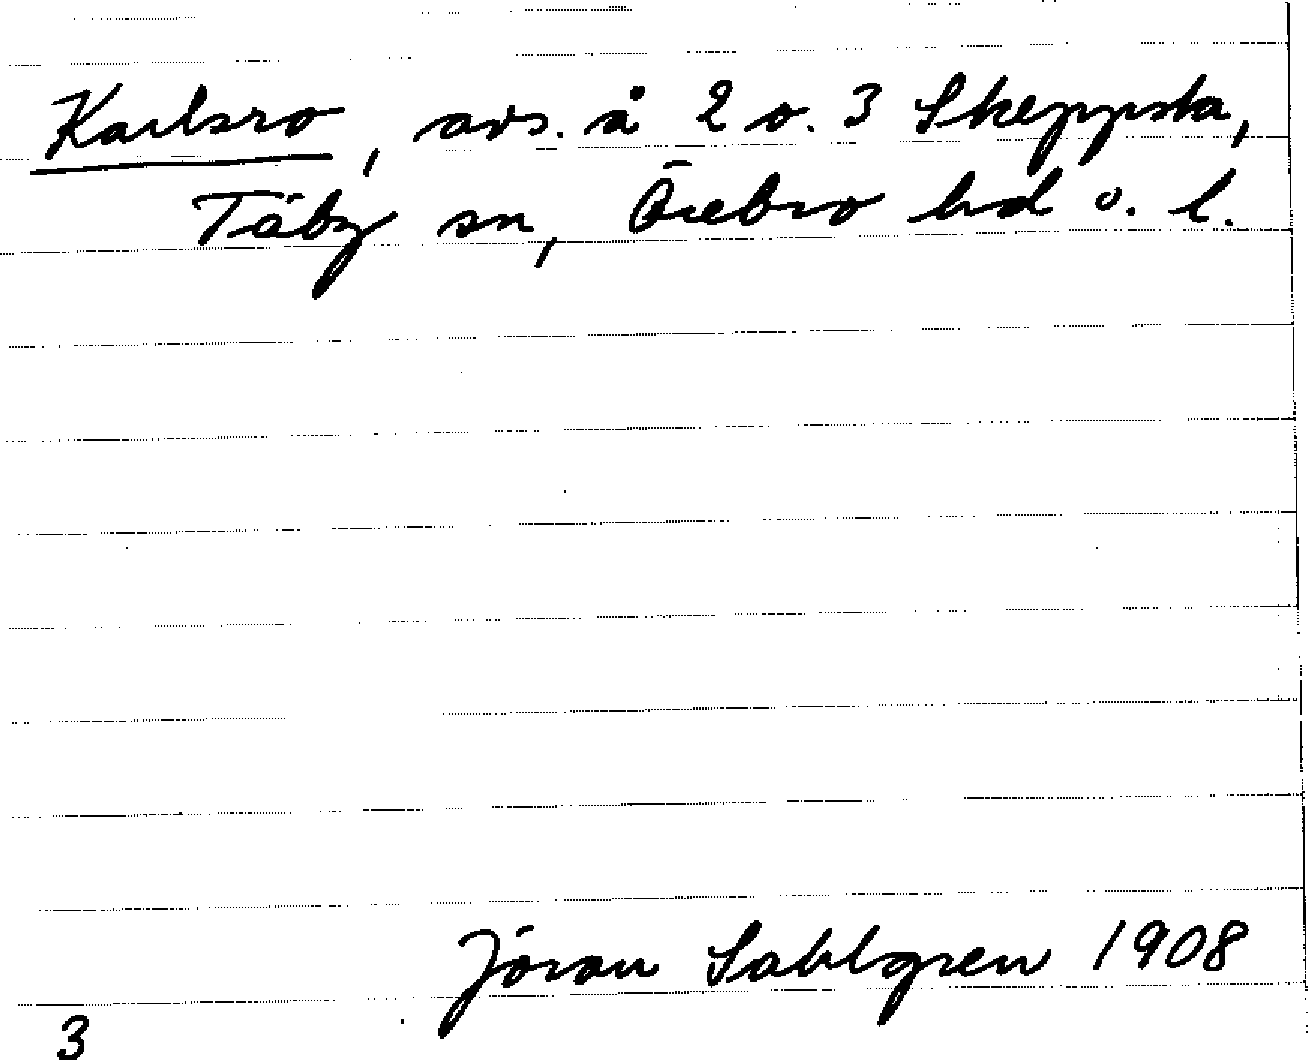 Karlsro, avs. å 2 o. 3 Skeppsta,
Täby sn, Örebro hd o. l.
Jöran Sahlgren 1908
3